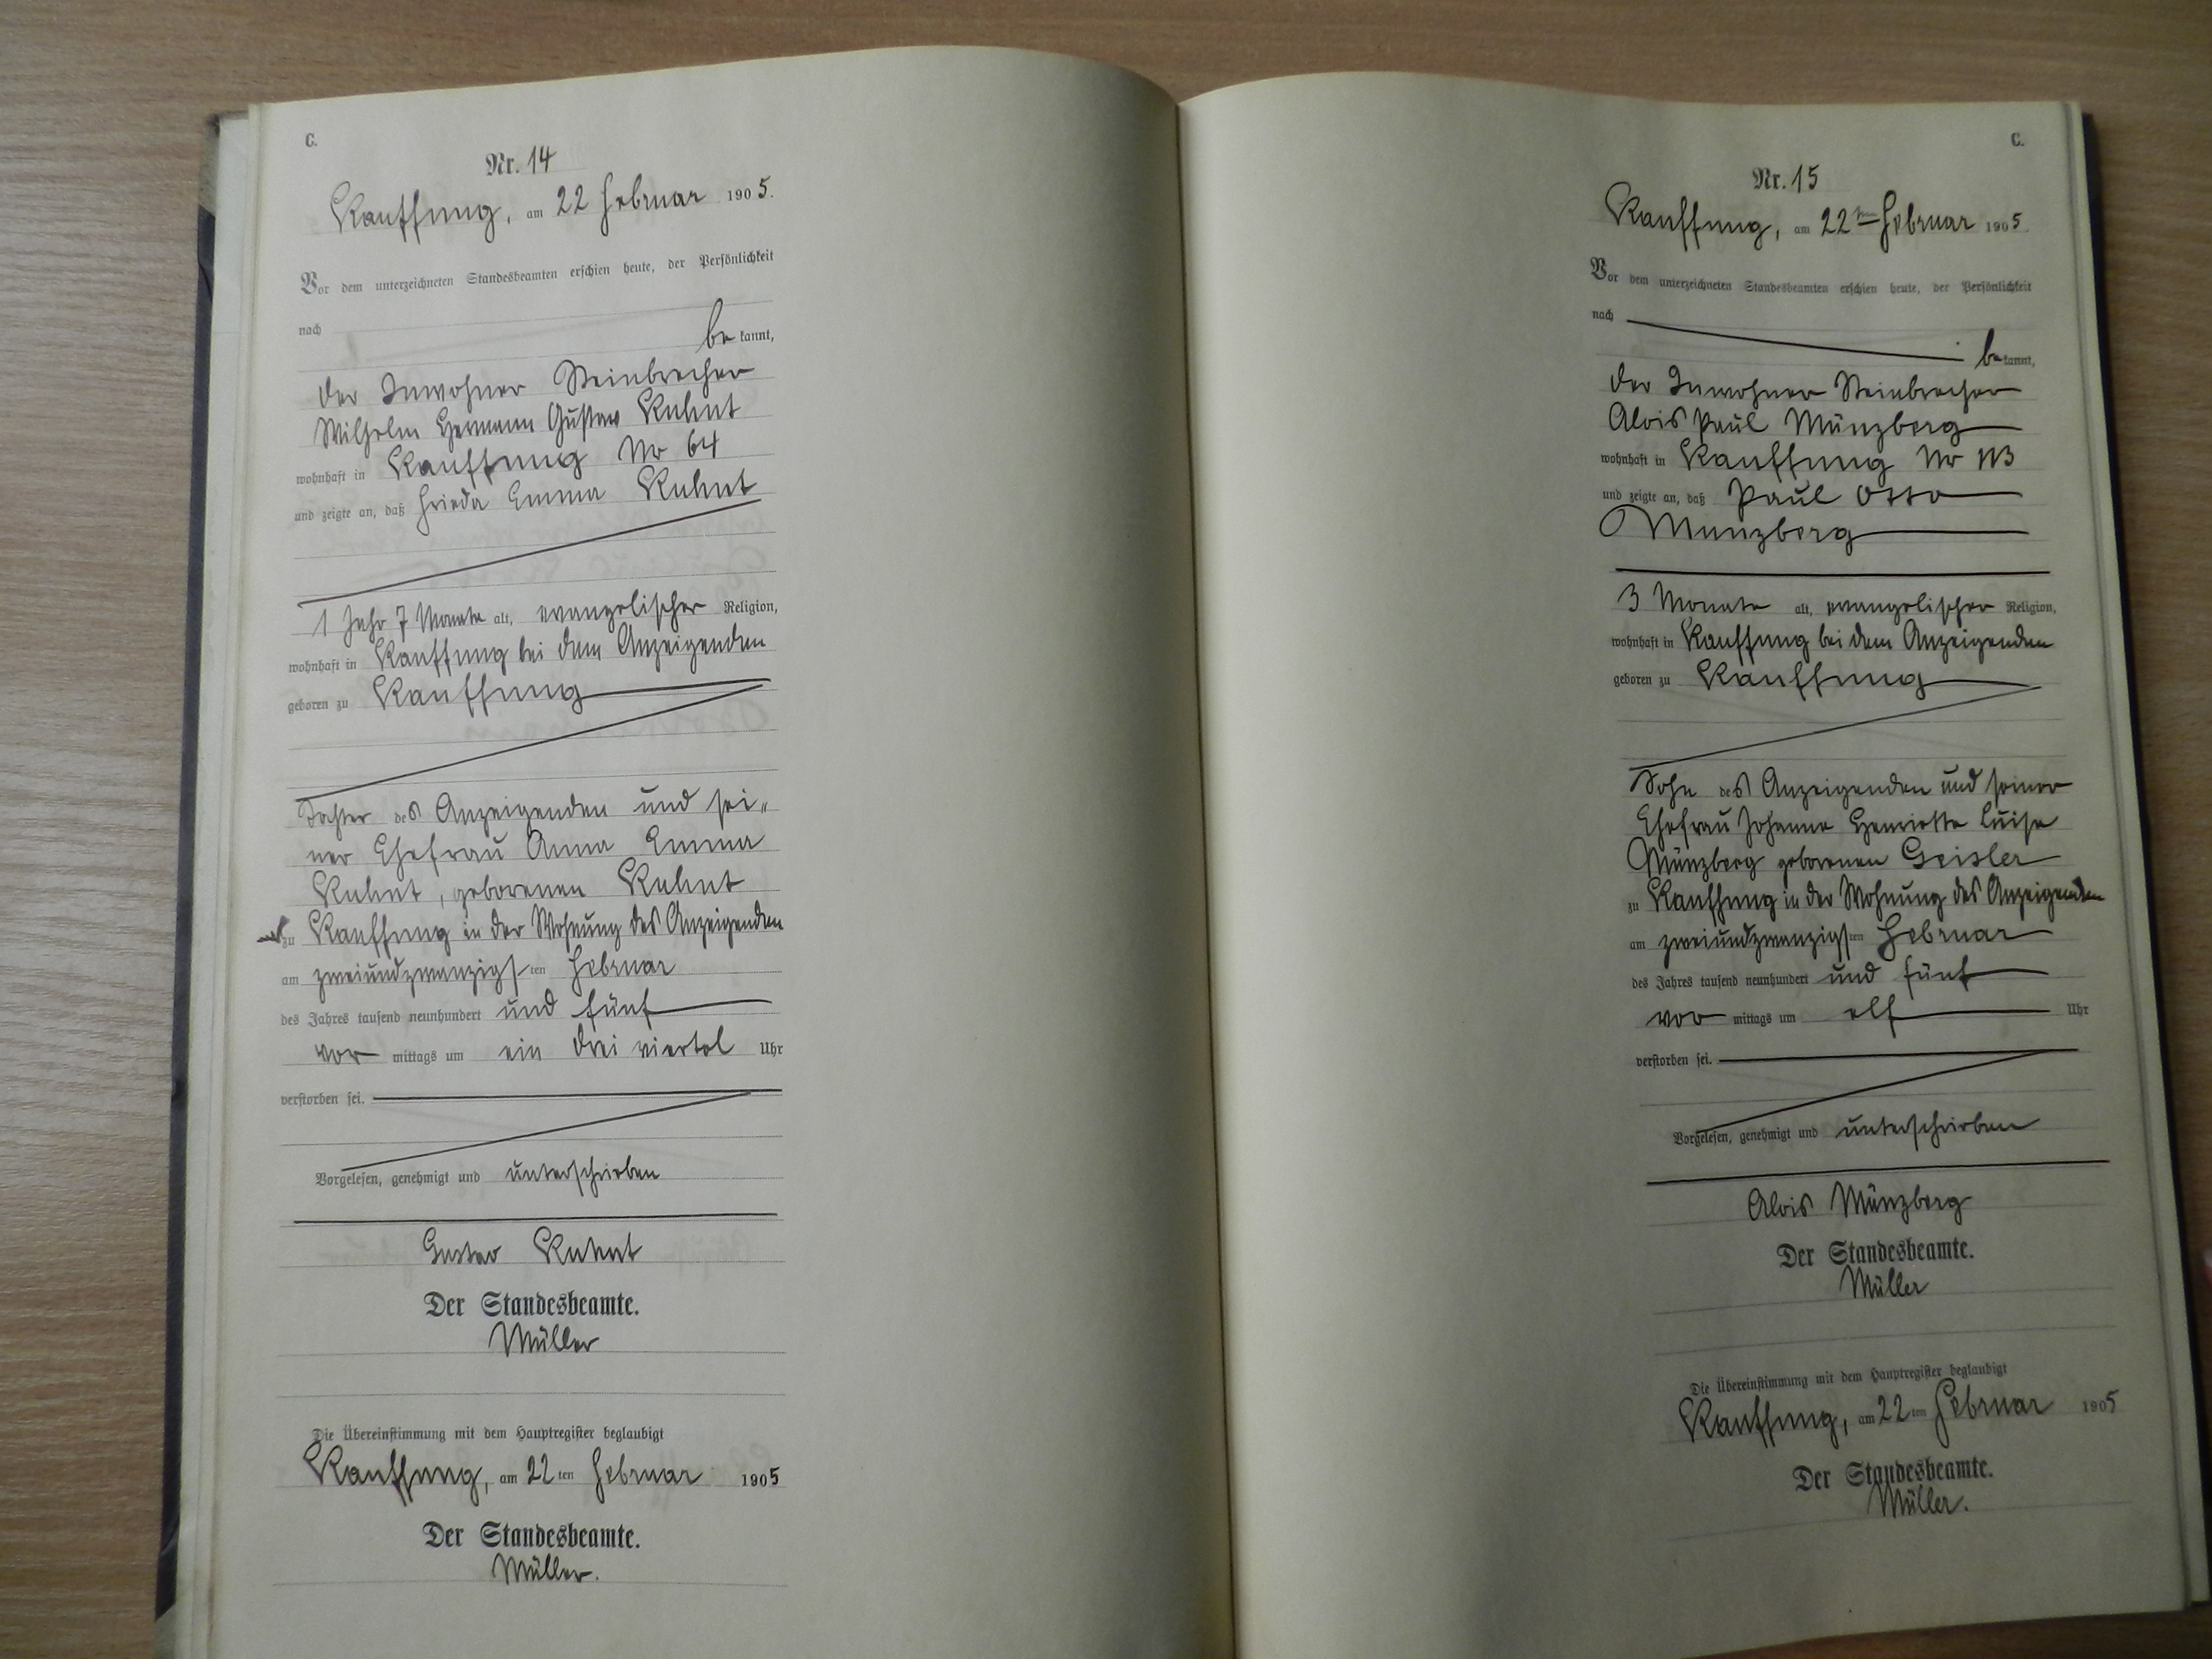 C.
Nr. 14
Kauffung, am 22 Februar 1905.
Vor dem unterzeichneten Standesbeamten erschien heute, der Persönlichkeit
nach
be kannt,
der Inwohner Steinbrecher
Wilhelm Hermann Gustav Kuhnt
wohnhaft in Kauffung No 64
und zeigte an, daß Frieda Emma Kuhnt
1 Jahr 7 Monate alt, evangelischer Religion,
wohnhaft in Kauffung bei dem Anzeigenden
geboren zu Kauffung
Tochter des Anzeigenden und sei„
ner Ehefrau Anna Emma
Kuhnt, geborenen Kuhnt
zu Kauffung in der Wohnung des Anzeigenden
am zweiundzwanzigsten Februar
des Jahres tausend neunhundert und fünf
vor mittags um ein drei viertel Uhr
verstorben sei.
Vorgelesen, genehmigt und unterschrieben
Gustav Kuhnt
Der Standesbeamte.
Müller
Die Übereinstimmung mit dem Hauptregister beglaubigt
Kauffung, am 22ten Februar 1905
Der Standesbeamte.
Müller.
C.
Nr. 15
Kauffung, am 22ten Februar 1905.
Vor dem unterzeichneten Standesbeamten erschien heute, der Persönlichkeit
nach
be kannt,
der Inwohner Steinbrecher
Alois Paul Münzberg
wohnhaft in Kauffung No 113
und zeigte an, daß Paul Otto
Münzberg
3 Monate alt, evangelischer Religion,
wohnhaft in Kauffung bei dem Anzeigenden
geboren zu Kauffung
Sohn des Anzeigenden und seiner
Ehefrau Johanna Henriette Luise
Münzberg geborenen Geisler
zu Kauffung in der Wohnung des Anzeigenden
am zweiundzwanzigsten Februar
des Jahres tausend neunhundert und fünf
vor mittags um elf Uhr
verstorben sei.
Vorgelesen, genehmigt und unterschrieben
Alois Münzberg
Der Standesbeamte.
Müller
Die Übereinstimmung mit dem Hauptregister beglaubigt
Kauffung, am 22ten Februar 1905
Der Standesbeamte.
Müller.